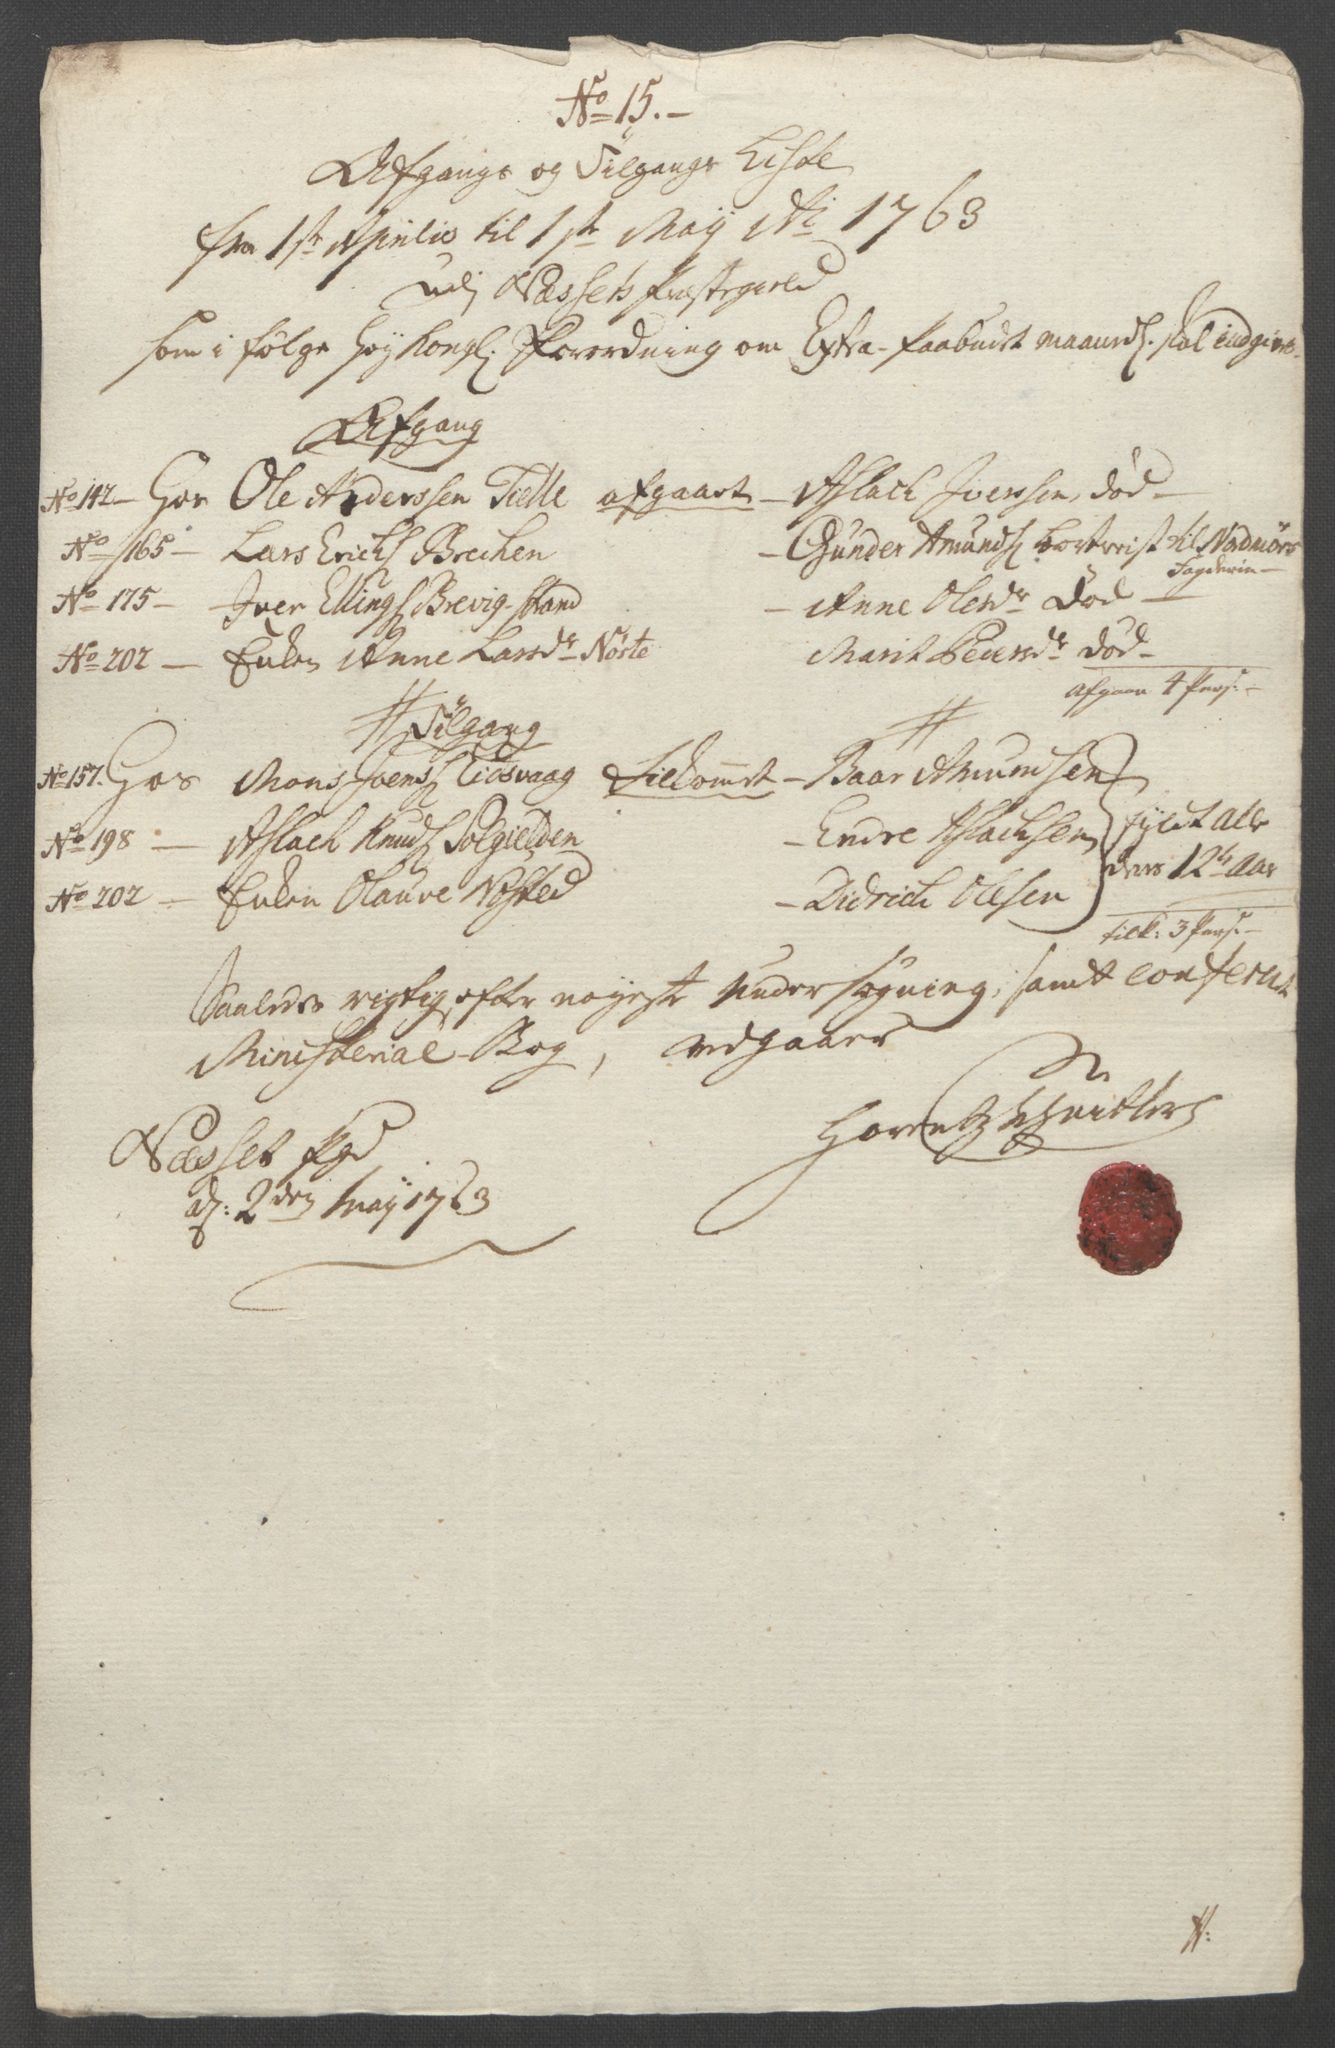 No 15.-
Afgangs og Tilgangs Liste
fra 1ste Aprilis til 1ste Maij Ai 1763
udj Næssets Præstegield
som i følge høy Kongl. Forordning om Extra-Paabudet maanedl. skal indgives.
Afgang
No 142- Hos Ole Anderssen Tielle afgaaet - Aslach Iverssen, død-
No 165- Lars Erichs Brechen - Gunder Amunds bortreist til Nordmørs
Fogderie-
No 175- Iver Ellings Brevig-Strand - Anne Olesdr Død-
No 202- Enken Anne Larsdr Nøste Marit Pedersdr død-
Afgaaen 4 Pers:-
Tilgang
No 157. Hos Mons Joens Tidsvaag Tilkommet - Baar Amundsen
No 198 - Aslach Knuds Solgielden - Endre Aslachsen fyldt alde
No 202 - Enken Olauve Nøsted - Didrich Olesen ders 12te Aar
tilk: 3 Pers:-
Saaledes rigtig, efter nøyeste Undersøgning, samt confereret
Ministerial-Bog, vedgaaer
Næsset Pgd
d: 2den Maij 1763